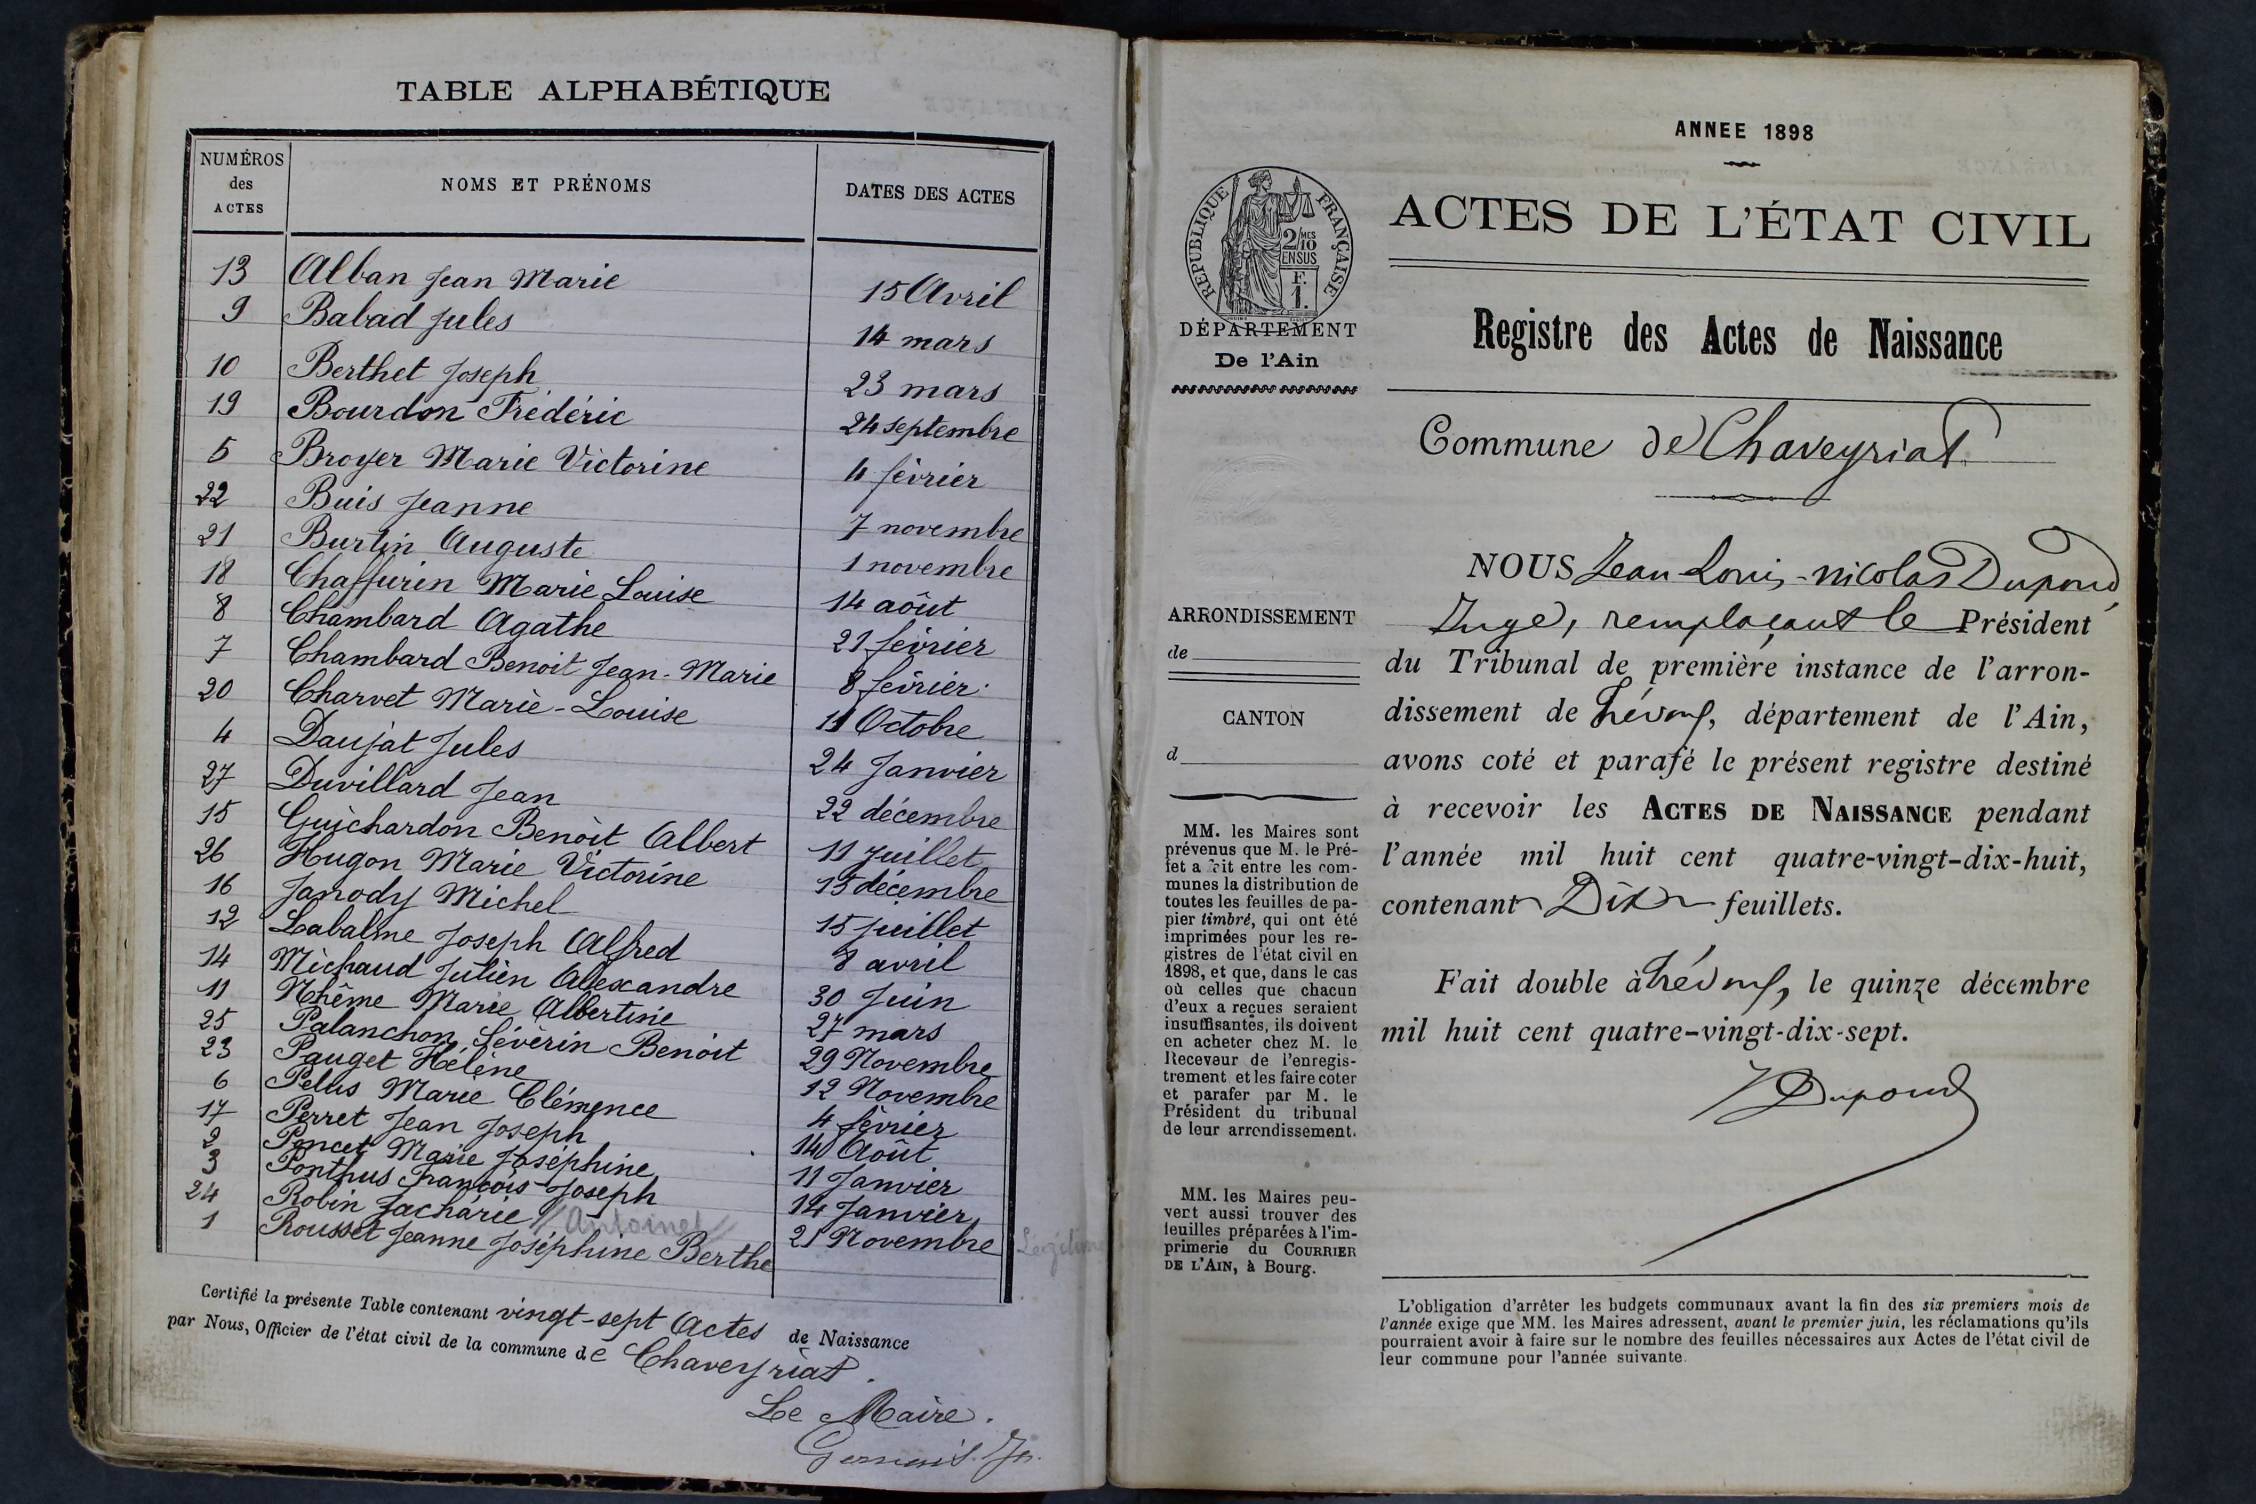 TABLE ALPHABÉTIQUE
NUMÉROS des ACTES
NOMS ET PRÉNOMS
DATES DES ACTES
13 Alban Jean Marie 15 Avril
9 Babad Jules 14 mars
10 Berthet Joseph 23 mars
19 Bourdon Frédéric 24 septembre
5 Broyer Marie Victorine 4 février
22 Buis Jeanne 7 novembre
21 Burtin Auguste 1 novembre
18 Chaffurin Marie Louise 14 aôut
8 Chambard Agathe 21 février
7 Chambard Benoit Jean-Marie 8 février
20 Charvet Marie-Louise 11 Octobre
4 Daujat Jules 24 Janvier
27 Duvillard Jean 22 décembre
15 Guichardon Benoit Albert 11 Juillet
26 Hugon Marie Victorine 15 décembre
16 Janody Michel 15 juillet
12 Labalme Joseph Alfred 8 avril
14 Michaud Julien Alexandre 30 Juin
11 Nhême Marie Albertine 27 mars
25 Palanchon Sévérin Benoit 29 Novembre
23 Pauget Hélène 12 Novembre
6 Pelus Marie Clémence 4 février
17 Perret Jean Joseph 14 Août
2 Poncet Marie Joséphine 11 Janvier
3 Ponthus François-Joseph 14 Janvier
24 Robin Zacharie // Antoinet // 21 Novembre
1 Rousset Jeanne Joséphine Berthe
Certifié la présente Table contenant vingt-sept Actes de Naissance
par Nous, Officier de l'état civil de la commune de Chaveyriat.
Le Maire.
ANNEE 1898
RÉPUBLIQUE FRANÇAISE
2/10 MES
EN SUS
F.
1.
ACTES DE L'ÉTAT CIVIL
DÉPARTEMENT
De l'Ain
Registre des Actes de Naissance
Commune de Chaveyriat
ARRONDISSEMENT
de
CANTON
d
MM. les Maires sont
prévenus que M. le Pré-
fet a fait entre les com-
munes la distribution de
toutes les feuilles de pa-
pier timbré, qui ont été
imprimées pour les re-
gistres de l'état civil en
1898, et que, dans le cas
où celles que chacun
d'eux a reçues seraient
insuffisantes, ils doivent
en acheter chez M. le
Receveur de l'enregis-
trement et les faire coter
et parafer par M. le
Président du tribunal
de leur arrondissement.
MM. les Maires peu-
vent aussi trouver des
feuilles préparées à l'im-
primerie du COURRIER
DE L'AIN, à Bourg.
NOUS Jean Louis-Nicolas Dupond
Juge, remplaçant le Président
du Tribunal de première instance de l'arron-
dissement de Trévoux, département de l'Ain,
avons coté et parafé le présent registre destiné
à recevoir les ACTES DE NAISSANCE pendant
l'année mil huit cent quatre-vingt-dix-huit,
contenant Dix feuillets.
Fait double à Trévoux, le quinze décembre
mil huit cent quatre-vingt-dix-sept.
Dupond
L'obligation d'arrêter les budgets communaux avant la fin des six premiers mois de
l'année exige que MM. les Maires adressent, avant le premier juin, les réclamations qu'ils
pourraient avoir à faire sur le nombre des feuilles nécessaires aux Actes de l'état civil de
leur commune pour l'année suivante.